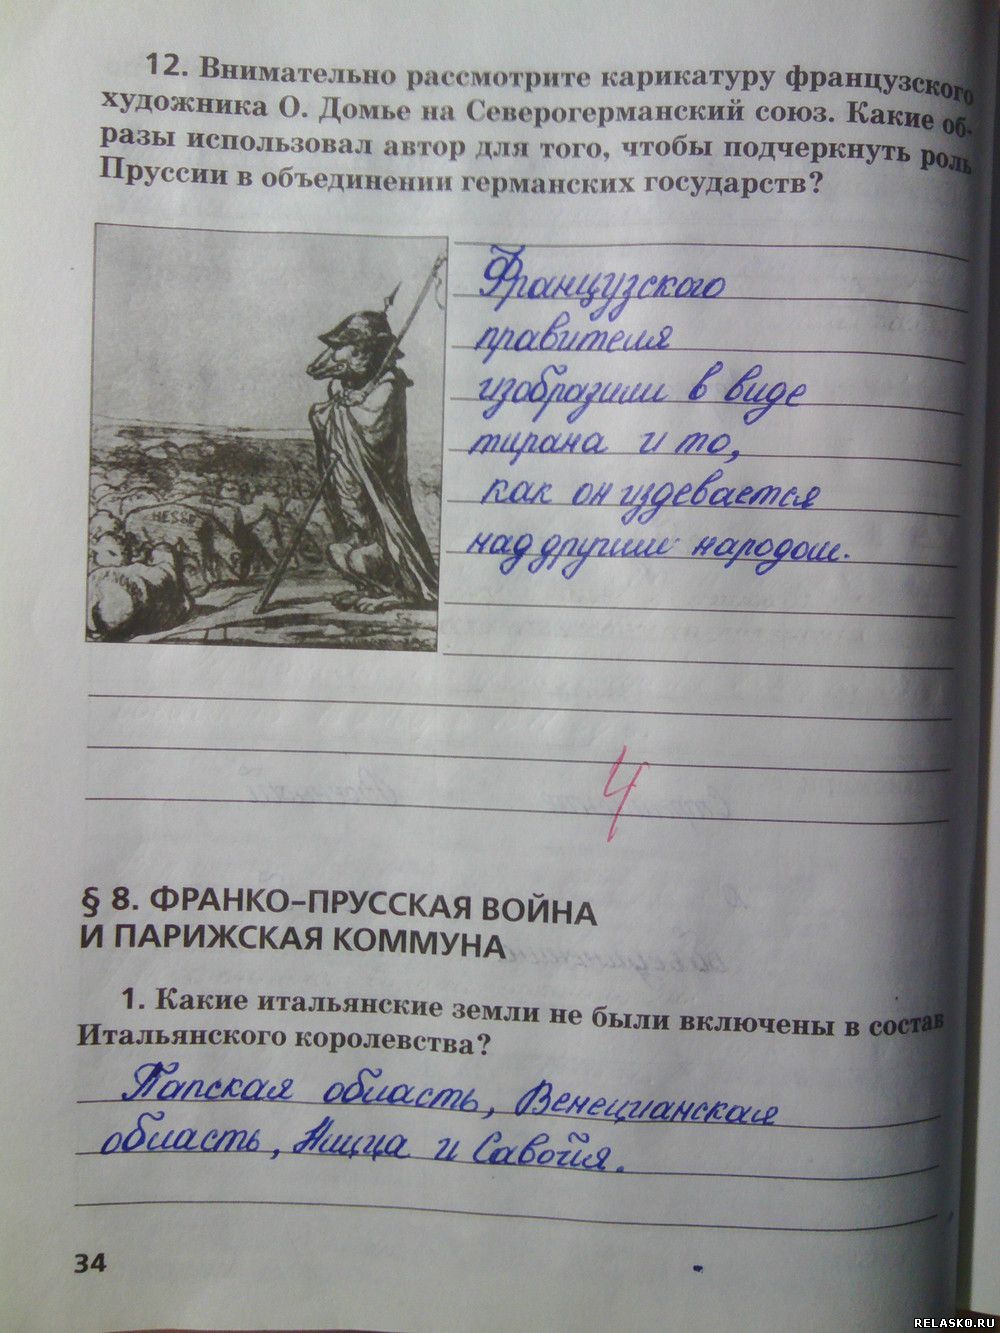 12. Внимательно рассмотрите карикатуру французского
художника О. Домье на Северогерманский союз. Какие об-
разы использовал автор для того, чтобы подчеркнуть роль
Пруссии в объединении германских государств?
HESSE
Французского
правителя
изобразили в виде
тирана и то,
как он издевается
над другим народом.
4
§ 8. ФРАНКО-ПРУССКАЯ ВОЙНА
И ПАРИЖСКАЯ КОММУНА
1. Какие итальянские земли не были включены в состав
Итальянского королевства?
Папская область, Венецианская
область, Ницца и Савойя.
34
RELASKO.RU